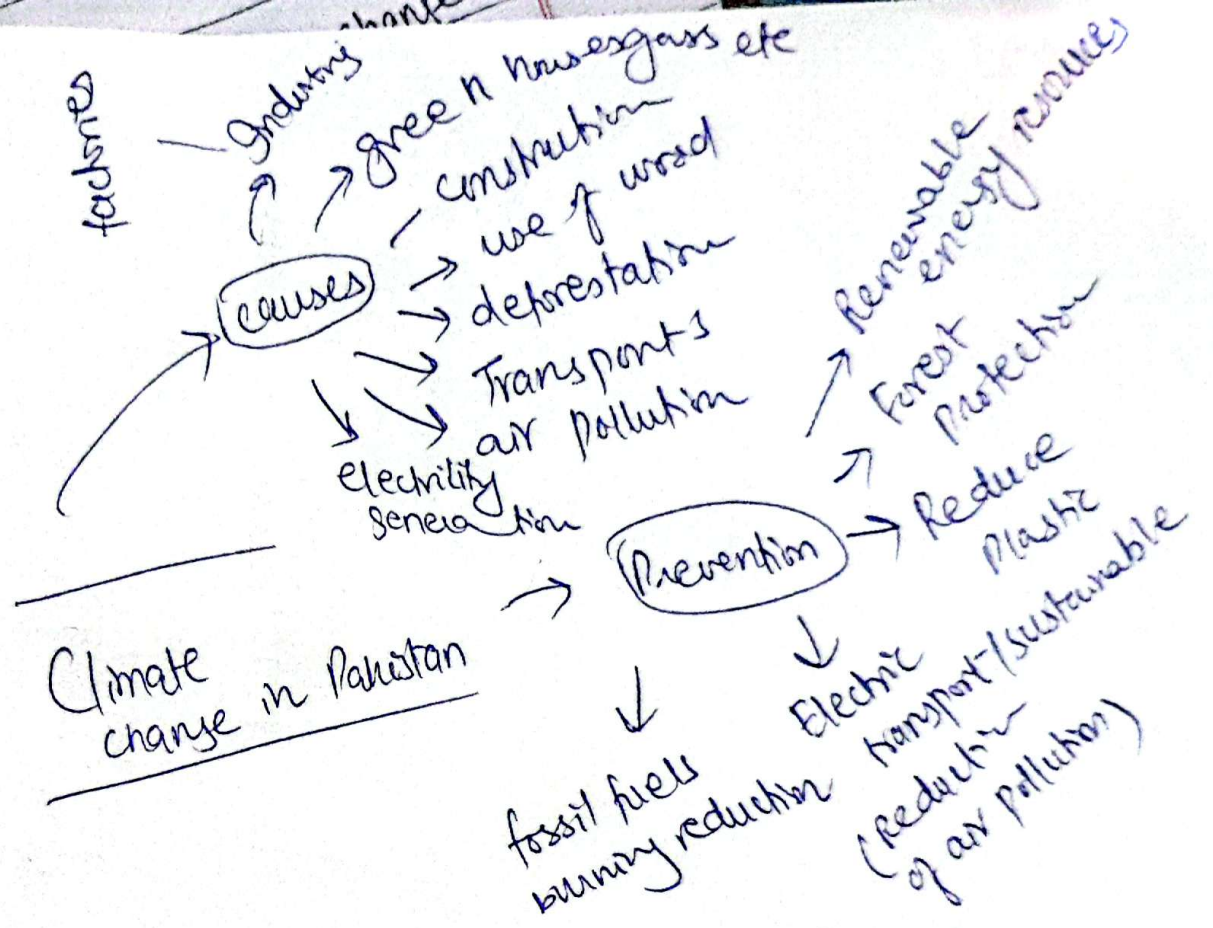 change
factories
Industries
green housesgass etc
construction
use of wood
deforestation
Transports
air pollution
electricity
generation
causes
Climate
change in Pakistan
Prevention
Renewable
energy resources
Forest
Protection
Reduce
Plastic
Electric
transport/sustainable
(Reduction
of air pollution)
fossil fuels
burning reduction